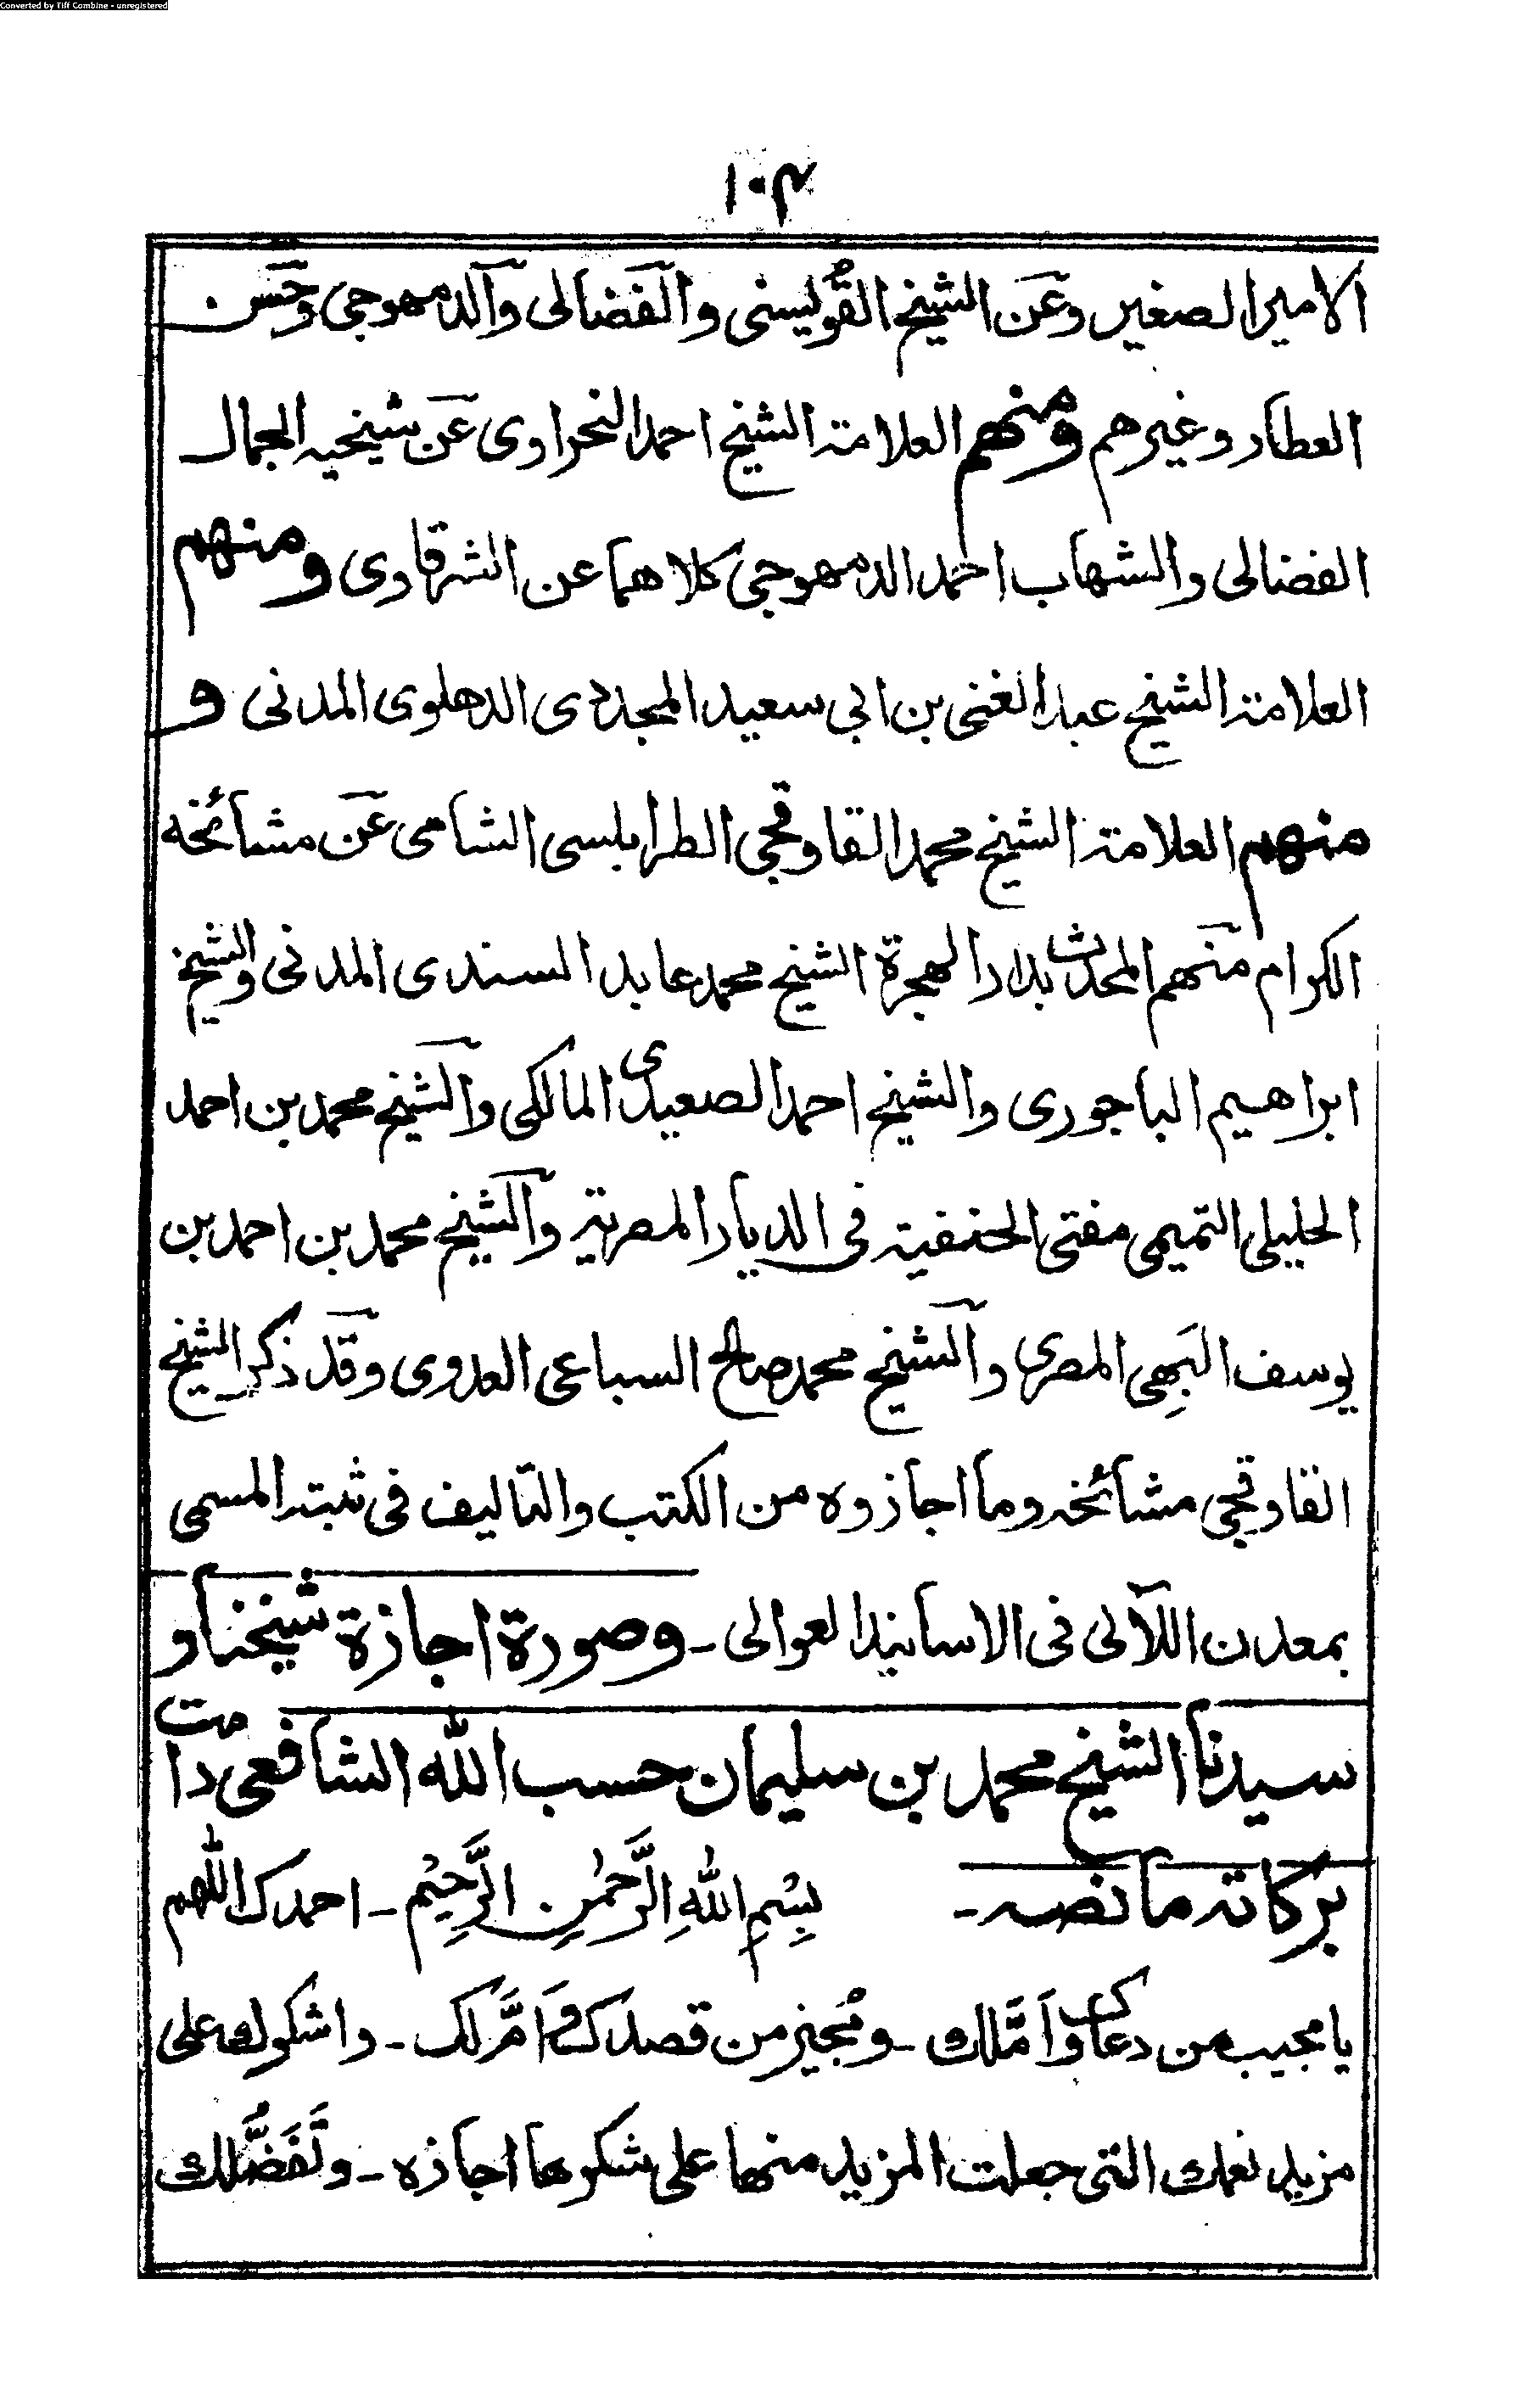 Converted by Tiff Combine - unregistered
١٠٣
الامير الصغير وعَن الشيخ القُوليسنى والفضالى والدمهوجى وحَسن
العطار وغيرهم ومنهم العلامة الشيخ احمد النحراوى عَن شيخيه الجمال
الفضالى والشهاب احمد الدمهوجى كلاهما عن الشرقاوى ومنهم
العلامة الشيخ عبد الغنى بن ابى سعيد المجددى الدهلوى المدنى و
منهم العلامة الشيخ محمد القاوقجى الطرابلسى الشامى عَن مشائخه
الكرام منهم المحدث بدار الهجرة الشيخ محمد عابد السندى المدنى والشيخ
ابراهيم الباجورى والشيخ احمد الصعيدى المالكى والشيخ محمد بن احمد
الخليلى التميمى مفتى الحنفية فى الديار المصرية والشيخ محمد بن احمد بن
يوسف البَهِى المصرى والشيخ محمد صالح السباعى العدوى وقد ذكر الشيخ
القاوقجى مشائخه وما اجازوه من الكتب والتاليف فى ثبته المسمى
بمعدن اللآلى فى الاسانيد العوالى - وصورة اجازة شيخنا و
سيدنا الشيخ محمد بن سليمان حسب الله الشافعى دامت
بركاته ما نصه - بِسْمِ اللهِ الرَّحْمٰنِ الرَّحِيْمِ - احمدك اللهم
يا مجيب من دعاك واَمَّلك - ومُجيز من قصدك واَمَّ لك - واشكرك على
مزيد نعمك التى جعلت المزيد منها على شكرها اجازه - وتَفَضُّلك